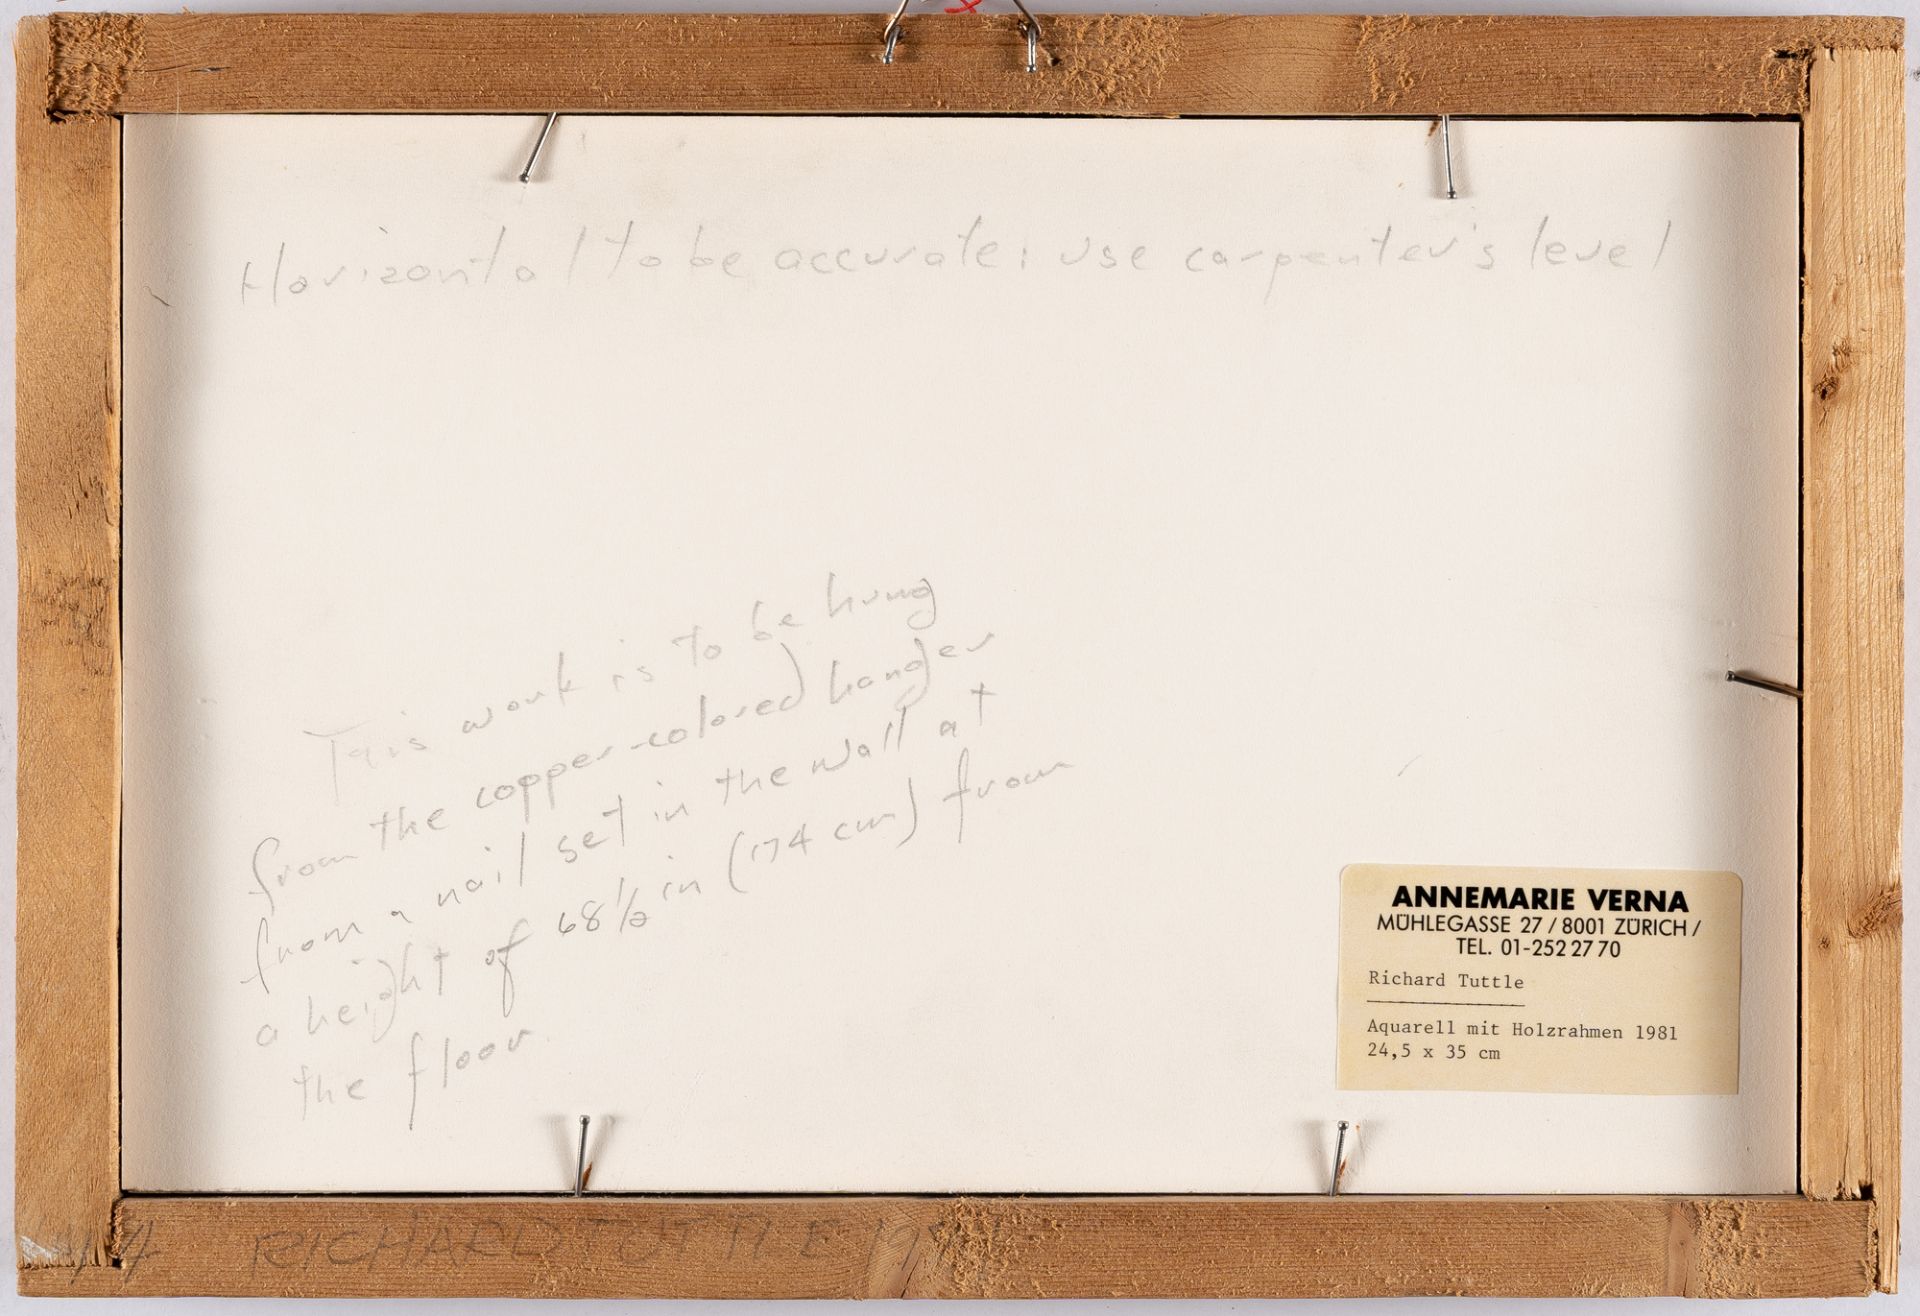 Horizontal to be accurate: use carpenter's level
This work is to be hung
from the copper-colored hanger
from a nail set in the wall at
a height of 68 1/2 in (174 cm) from
the floor.
ANNEMARIE VERNA
MÜHLEGASSE 27 / 8001 ZÜRICH /
TEL. 01-252 27 70
Richard Tuttle
Aquarell mit Holzrahmen 1981
24,5 x 35 cm
RICHARD TUTTLE